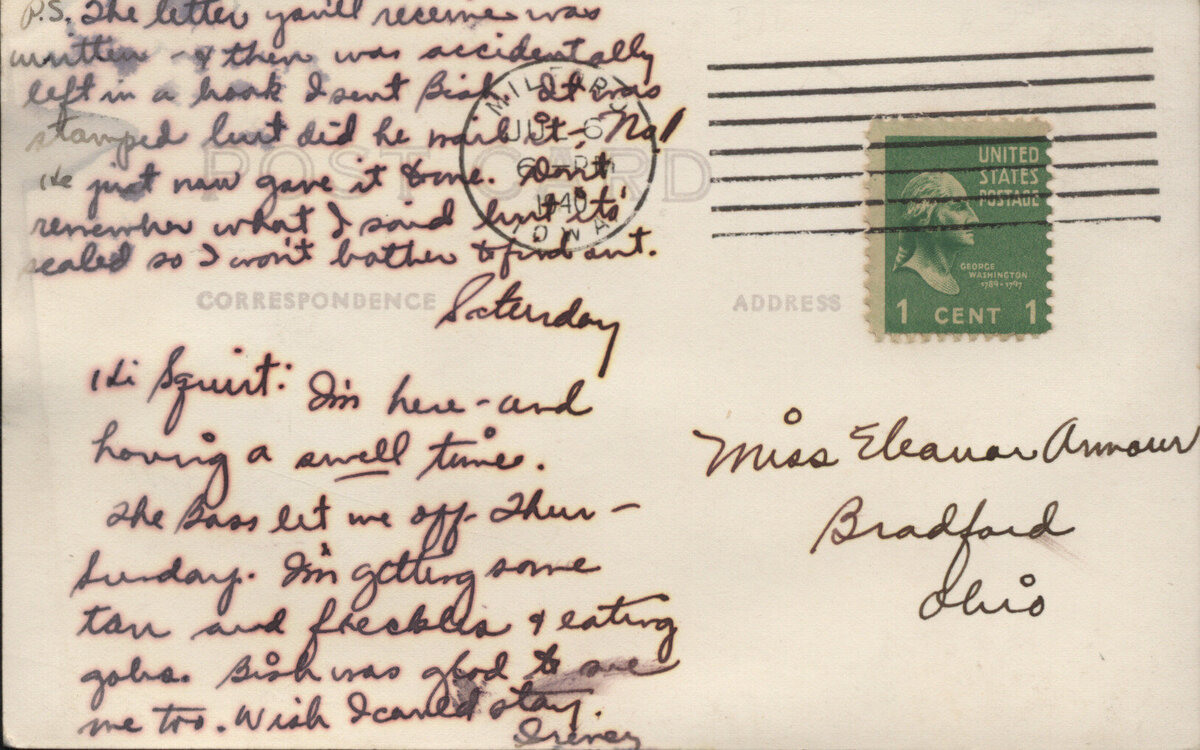 P.S. The letter you'll receive was
written - & then was accidentally
left in a book I sent Bish. It was
stamped but did he mail it - No!
He just now gave it to me. Don't
remember what I said but it's
sealed so I won't bother to find out.
Saturday
Hi Squirt:
I'm here - and
having a swell time.
The Boss let me off Thur -
Sunday. I'm getting some
tan and freckles & eating
gobs. Bish was glad to see
me too. Wish I could stay.
POST CARD
CORRESPONDENCE
ADDRESS
MILFORD
JUL 6
6 PM
1940
IOWA
UNITED
STATES
POSTAGE
GEORGE
WASHINGTON
1789-1797
1 CENT 1
Miss Eleanor Armour
Bradford
Ohio